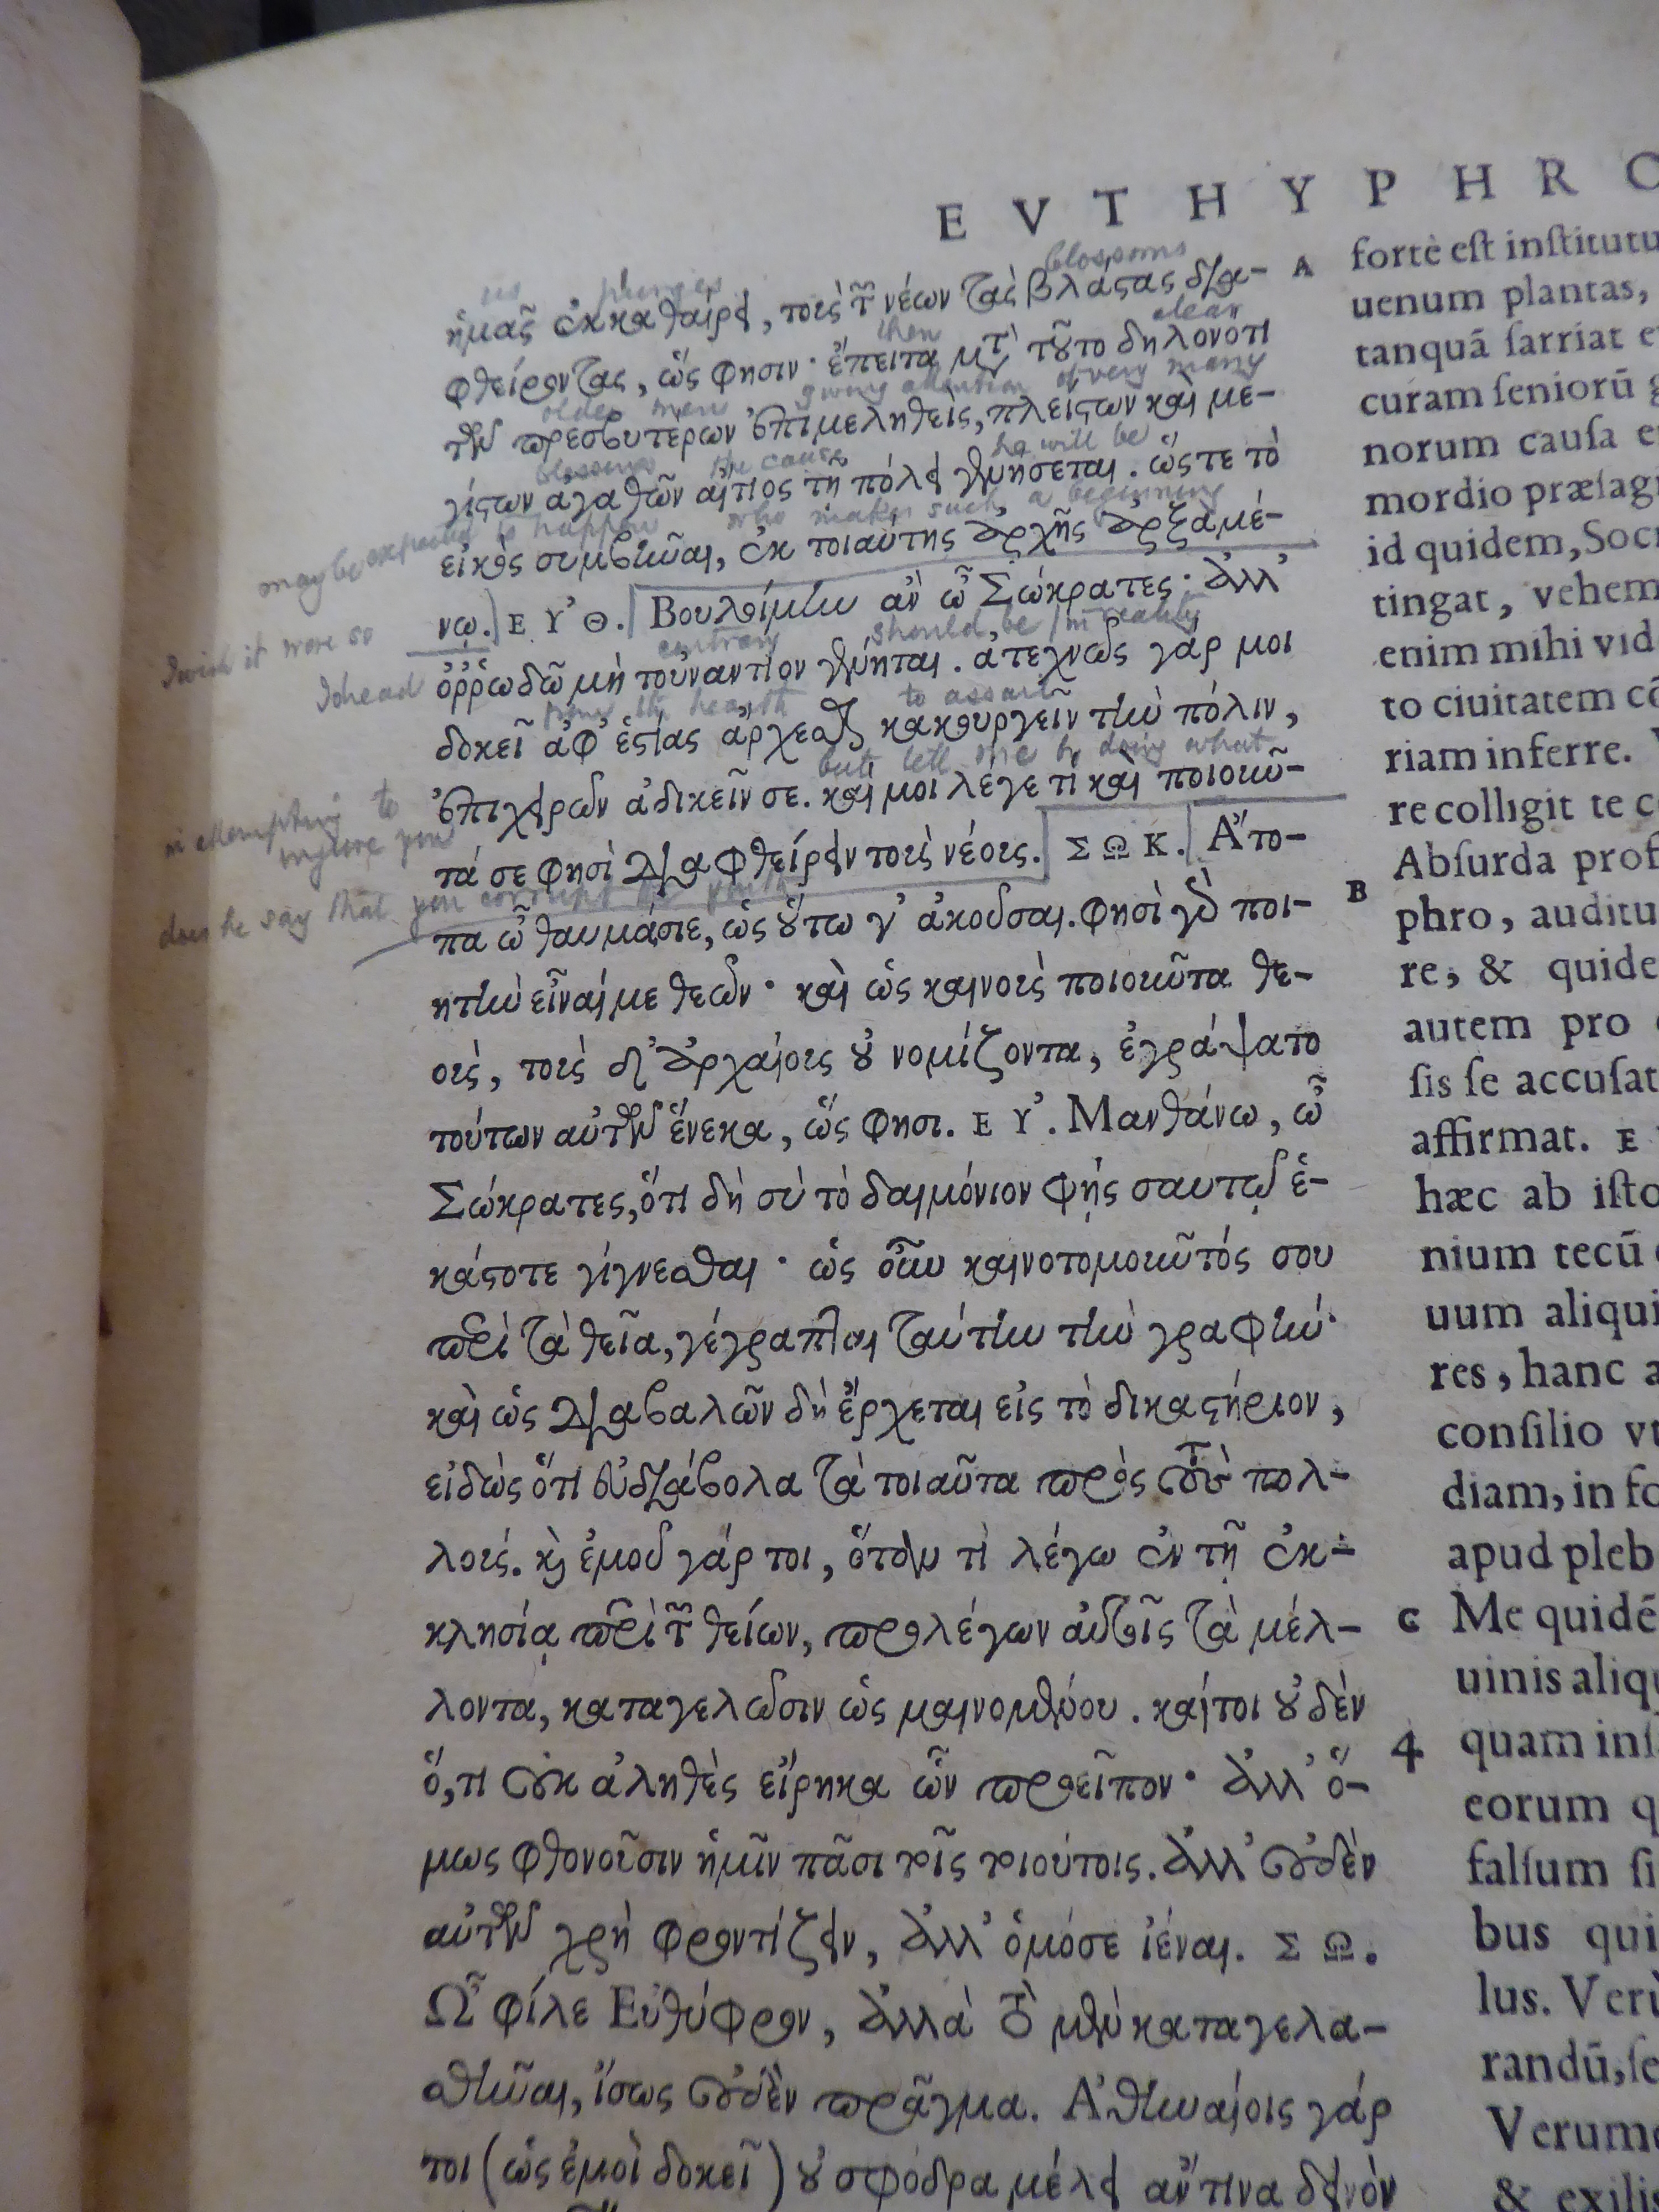 EVTHYPHRO
blossoms
us purges
ἡμᾶς ἐκκαθαίρει, τοὺς τῶν νέων τὰς βλάστας δια-
then clear
φθείροντας, ὥς φησιν· ἔπειτα μετὰ τοῦτο δηλονότι
older men giving attention of very many
τῶν πρεσβυτέρων ἐπιμεληθεὶς, πλείστων καὶ με-
blessings the cause he will be
γίστων ἀγαθῶν αἴτιος τῇ πόλει γενήσεται. ὥστε τὸ
may be expected to happen who makes such a beginning
εἰκὸς συμβῆναι, ἐκ τοιαύτης ἀρχῆς ἀρξαμέ-
νῳ. ΕΥ᾽Θ. Βουλοίμην ἂν ὦ Σώκρατες· ἀλλ᾽
I wish it were so
contrary should be / in reality
I dread
ὀῤῥωδῶ μὴ τοὐναντίον γένηται. ἀτεχνῶς γάρ μοι
from the hearth to assault
δοκεῖ ἀφ᾽ ἑστίας ἄρχεσθαι κακουργεῖν τὴν πόλιν,
but tell me by doing what
ἐπιχειρῶν ἀδικεῖν σε. καί μοι λέγε τί καὶ ποιοῦν-
in attempting to injure you
τά σε φησὶ διαφθείρειν τοὺς νέους. ΣΩΚ. Ἄτο-
does he say that you corrupt the youth
πα ὦ θαυμάσιε, ὡς οὕτω γ᾽ ἀκοῦσαι. φησὶ γὰρ ποι-
ητὴν εἶναί με θεῶν· καὶ ὡς καινοὺς ποιοῦντα θε-
οὺς, τοὺς δ᾽ ἀρχαίους οὐ νομίζοντα, ἐγράψατο
τούτων αὐτῶν ἕνεκα, ὥς φησι. ΕΥ᾽. Μανθάνω, ὦ
Σώκρατες, ὅτι δὴ σὺ τὸ δαιμόνιον φῂς σαυτῷ ἑ-
κάστοτε γίγνεσθαι· ὡς οὖν καινοτομοῦντός σου
περὶ τὰ θεῖα, γέγραπται ταύτην τὴν γραφήν·
καὶ ὡς διαβαλῶν δὴ ἔρχεται εἰς τὸ δικαστήριον,
εἰδὼς ὅτι εὐδιάβολα τὰ τοιαῦτα πρὸς τοὺς πολ-
λούς. καὶ ἐμοῦ γάρ τοι, ὅταν τὶ λέγω ἐν τῇ ἐκ-
κλησίᾳ περὶ τῶν θείων, προλέγων αὐτοῖς τὰ μέλ-
λοντα, καταγελῶσιν ὡς μαινομένου. καίτοι οὐδὲν
ὅ,τι οὐκ ἀληθὲς εἴρηκα ὧν προεῖπον· ἀλλ᾽ ὅ-
μως φθονοῦσιν ἡμῖν πᾶσι τοῖς τοιούτοις. ἀλλ᾽ οὐδὲν
αὐτῶν χρὴ φροντίζειν, ἀλλ᾽ ὁμόσε ἰέναι. ΣΩ.
Ὦ φίλε Εὐθύφρον, ἀλλὰ τὸ μὲν καταγελα-
σθῆναι, ἴσως οὐδὲν πρᾶγμα. Ἀθηναίοις γάρ
τοι (ὡς ἐμοὶ δοκεῖ) οὐ σφόδρα μέλει ἄν τινα δεινὸν
A
B
C
4
fortè est institutu
uenum plantas,
tanquã sarriat e
curam seniorū g
norum causa e
mordio præsagi
id quidem, Socr
tingat, vehem
enim mihi vid
to ciuitatem cõ
riam inferre. V
re colligit te c
Absurda prof
phro, auditu
re, & quide
autem pro
sis se accusat
affirmat. E
hæc ab isto
nium tecū
uum aliqui
res, hanc a
consilio vt
diam, in fo
apud pleb
Me quidē
uinis aliqu
quam ins
eorum q
falsum si
bus qui
lus. Verù
randū, se
Verume
& exilis